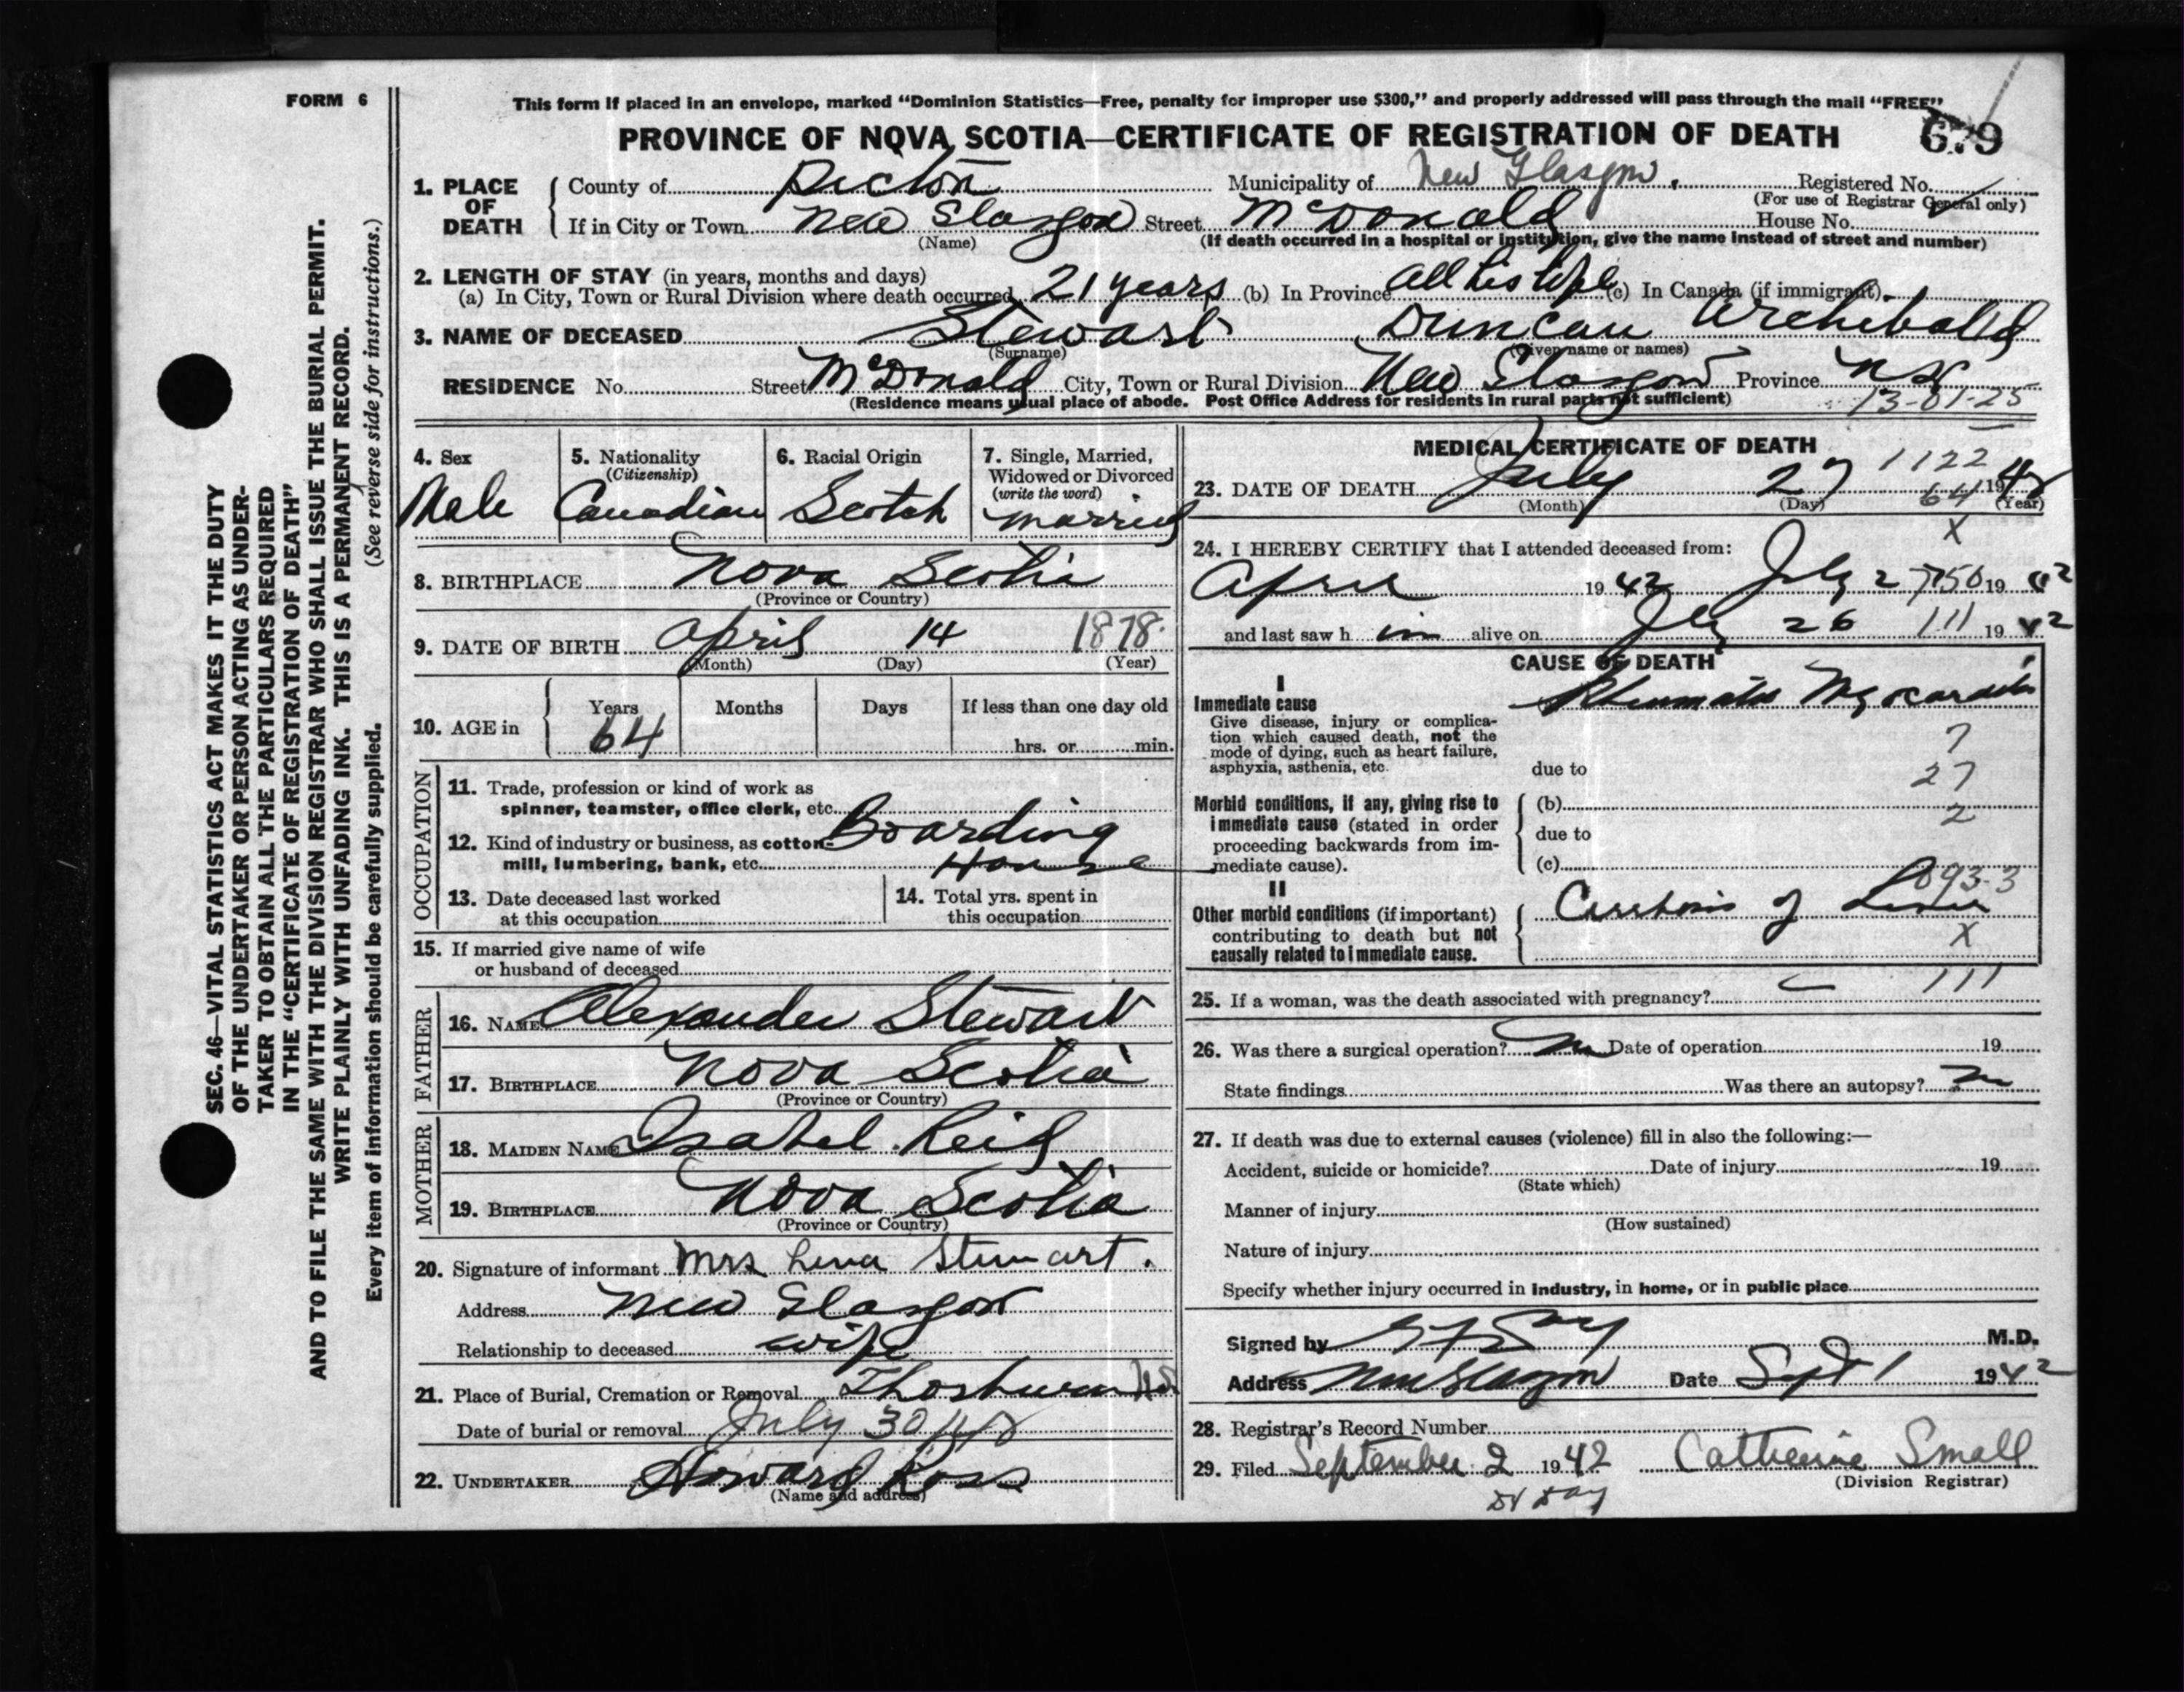 FORM 6
This form if placed in an envelope, marked “Dominion Statistics—Free, penalty for improper use $300,” and properly addressed will pass through the mail “FREE”
PROVINCE OF NOVA SCOTIA—CERTIFICATE OF REGISTRATION OF DEATH 679
1. PLACE OF DEATH County of Pictou Municipality of New Glasgow. Registered No.
(For use of Registrar General only)
If in City or Town New Glasgow Street McDonald House No.
(Name) (If death occurred in a hospital or institution, give the name instead of street and number)
2. LENGTH OF STAY (in years, months and days)
(a) In City, Town or Rural Division where death occurred 21 years (b) In Province all his life (c) In Canada (if immigrant)
3. NAME OF DECEASED Stewart Duncan Archibald
(Surname) (Given name or names)
RESIDENCE No. Street McDonald City, Town or Rural Division New Glasgow Province N.S.
(Residence means usual place of abode. Post Office Address for residents in rural parts not sufficient)
13-01-25
4. Sex Male
5. Nationality (Citizenship) Canadian
6. Racial Origin Scotch
7. Single, Married, Widowed or Divorced (write the word) married
8. BIRTHPLACE Nova Scotia
(Province or Country)
9. DATE OF BIRTH April 14 1878
(Month) (Day) (Year)
10. AGE in Years 64 Months Days If less than one day old
hrs. or min.
OCCUPATION
11. Trade, profession or kind of work as
spinner, teamster, office clerk, etc.
12. Kind of industry or business, as cotton Boarding
mill, lumbering, bank, etc. House
13. Date deceased last worked
at this occupation
14. Total yrs. spent in
this occupation
15. If married give name of wife
or husband of deceased
FATHER
16. NAME Alexander Stewart
17. BIRTHPLACE Nova Scotia
(Province or Country)
MOTHER
18. MAIDEN NAME Isabel Reid
19. BIRTHPLACE Nova Scotia
(Province or Country)
20. Signature of informant Mrs Lena Stewart.
Address New Glasgow
Relationship to deceased wife
21. Place of Burial, Cremation or Removal
Date of burial or removal July 30
22. UNDERTAKER Howard Ross
(Name and address)
MEDICAL CERTIFICATE OF DEATH
1122
23. DATE OF DEATH July 27 64 1942
(Month) (Day) (Year)
X
24. I HEREBY CERTIFY that I attended deceased from:
April 1942 July 27 750 1942
and last saw him alive on July 26 111 1942
CAUSE OF DEATH
I
Immediate cause Rheumatic Myocarditis
Give disease, injury or complica-
tion which caused death, not the
mode of dying, such as heart failure,
asphyxia, asthenia, etc.
7
due to 27
Morbid conditions, if any, giving rise to
immediate cause (stated in order
proceeding backwards from im-
mediate cause).
(b) 2
due to
(c)
093-3
II
Other morbid conditions (if important)
contributing to death but not
causally related to immediate cause.
Cirrhosis of Liver
X
111
25. If a woman, was the death associated with pregnancy?
26. Was there a surgical operation? no Date of operation 19
State findings Was there an autopsy? no
27. If death was due to external causes (violence) fill in also the following:—
Accident, suicide or homicide? Date of injury 19
(State which)
Manner of injury
(How sustained)
Nature of injury
Specify whether injury occurred in Industry, in home, or in public place
Signed by M.D.
Address New Glasgow Date Sept 1 1942
28. Registrar's Record Number
29. Filed September 2 1942 Catherine Small
(Division Registrar)
Dr Day
SEC. 46—VITAL STATISTICS ACT MAKES IT THE DUTY
OF THE UNDERTAKER OR PERSON ACTING AS UNDER-
TAKER TO OBTAIN ALL THE PARTICULARS REQUIRED
IN THE “CERTIFICATE OF REGISTRATION OF DEATH”
AND TO FILE THE SAME WITH THE DIVISION REGISTRAR WHO SHALL ISSUE THE BURIAL PERMIT.
WRITE PLAINLY WITH UNFADING INK. THIS IS A PERMANENT RECORD.
Every item of information should be carefully supplied. (See reverse side for instructions.)